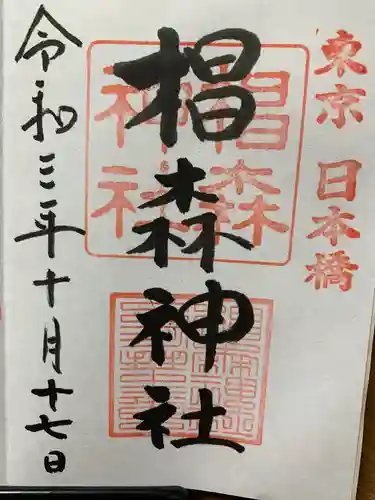 東京 日本橋
椙森神社
椙森
神社
令和三年十月十七日